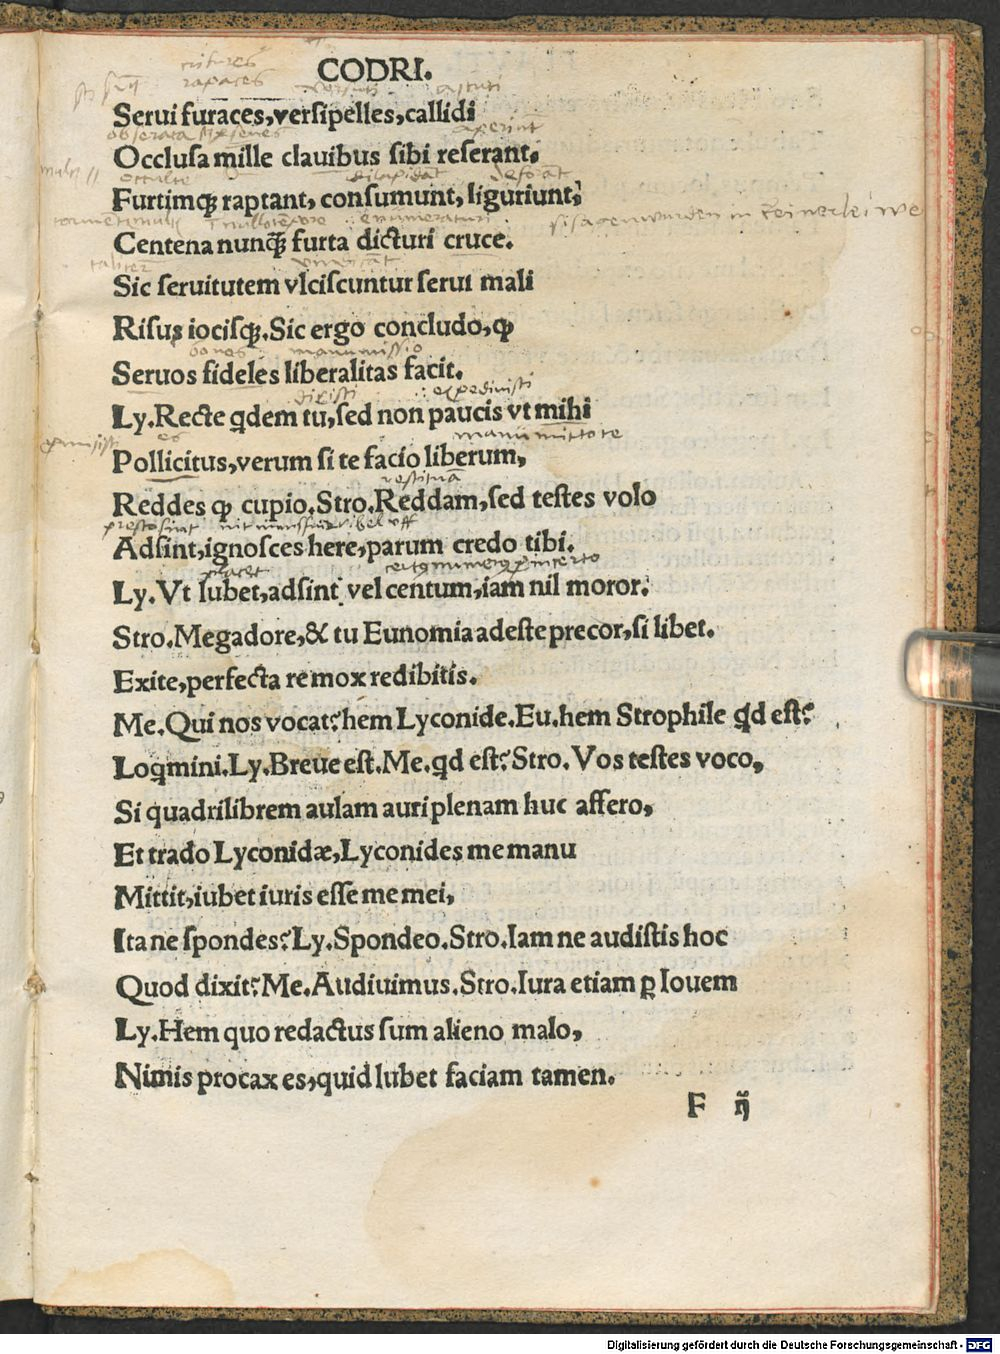 CODRI.
cutures
rapaces
versuti astuti
Serui furaces,versipelles,callidi
obserata aperiunt
Occlusa mille clauibus sibi reserant.
occulte dilapidant
Furtimq; raptant, consumunt, liguriunt;
enumeraturi
Centena nunq̃ furta dicturi cruce.
taliter
Sic seruitutem vlciscuntur serui mali
Risus iocisq;.Sic ergo concludo,ꝙ
bonos manumissio
Seruos fideles liberalitas facit.
dixisti expedivisti
Ly.Recte qdem tu,sed non paucis vt mihi
promisisti es manumittore
Pollicitus,verum si te facio liberum,
restituā
Reddes ꝙ cupio.Stro.Reddam,sed testes volo
Adsint,ignosces here,parum credo tibi.
placet
Ly.Vt lubet,adsint vel centum,iam nil moror.
Stro.Megadore,& tu Eunomia adeste precor,si libet.
Exite,perfecta re mox redibitis.
Me.Qui nos vocat?hem Lyconide.Eu.hem Strophile qd est?
Loqmini.Ly.Breue est.Me.qd est?Stro.Vos testes voco,
Si quadrilibrem aulam auri plenam huc affero,
Et trado Lyconidæ,Lyconides me manu
Mittit,iubet iuris esse me mei,
Ita ne spondes?Ly.Spondeo.Stro.Iam ne audistis hoc
Quod dixit?Me.Audiuimus.Stro.Iura etiam ꝑ Iouem
Ly.Hem quo redactus sum alieno malo,
Nimis procax es,quid lubet faciam tamen.
F ij
Digitalisierung gefördert durch die Deutsche Forschungsgemeinschaft - DFG